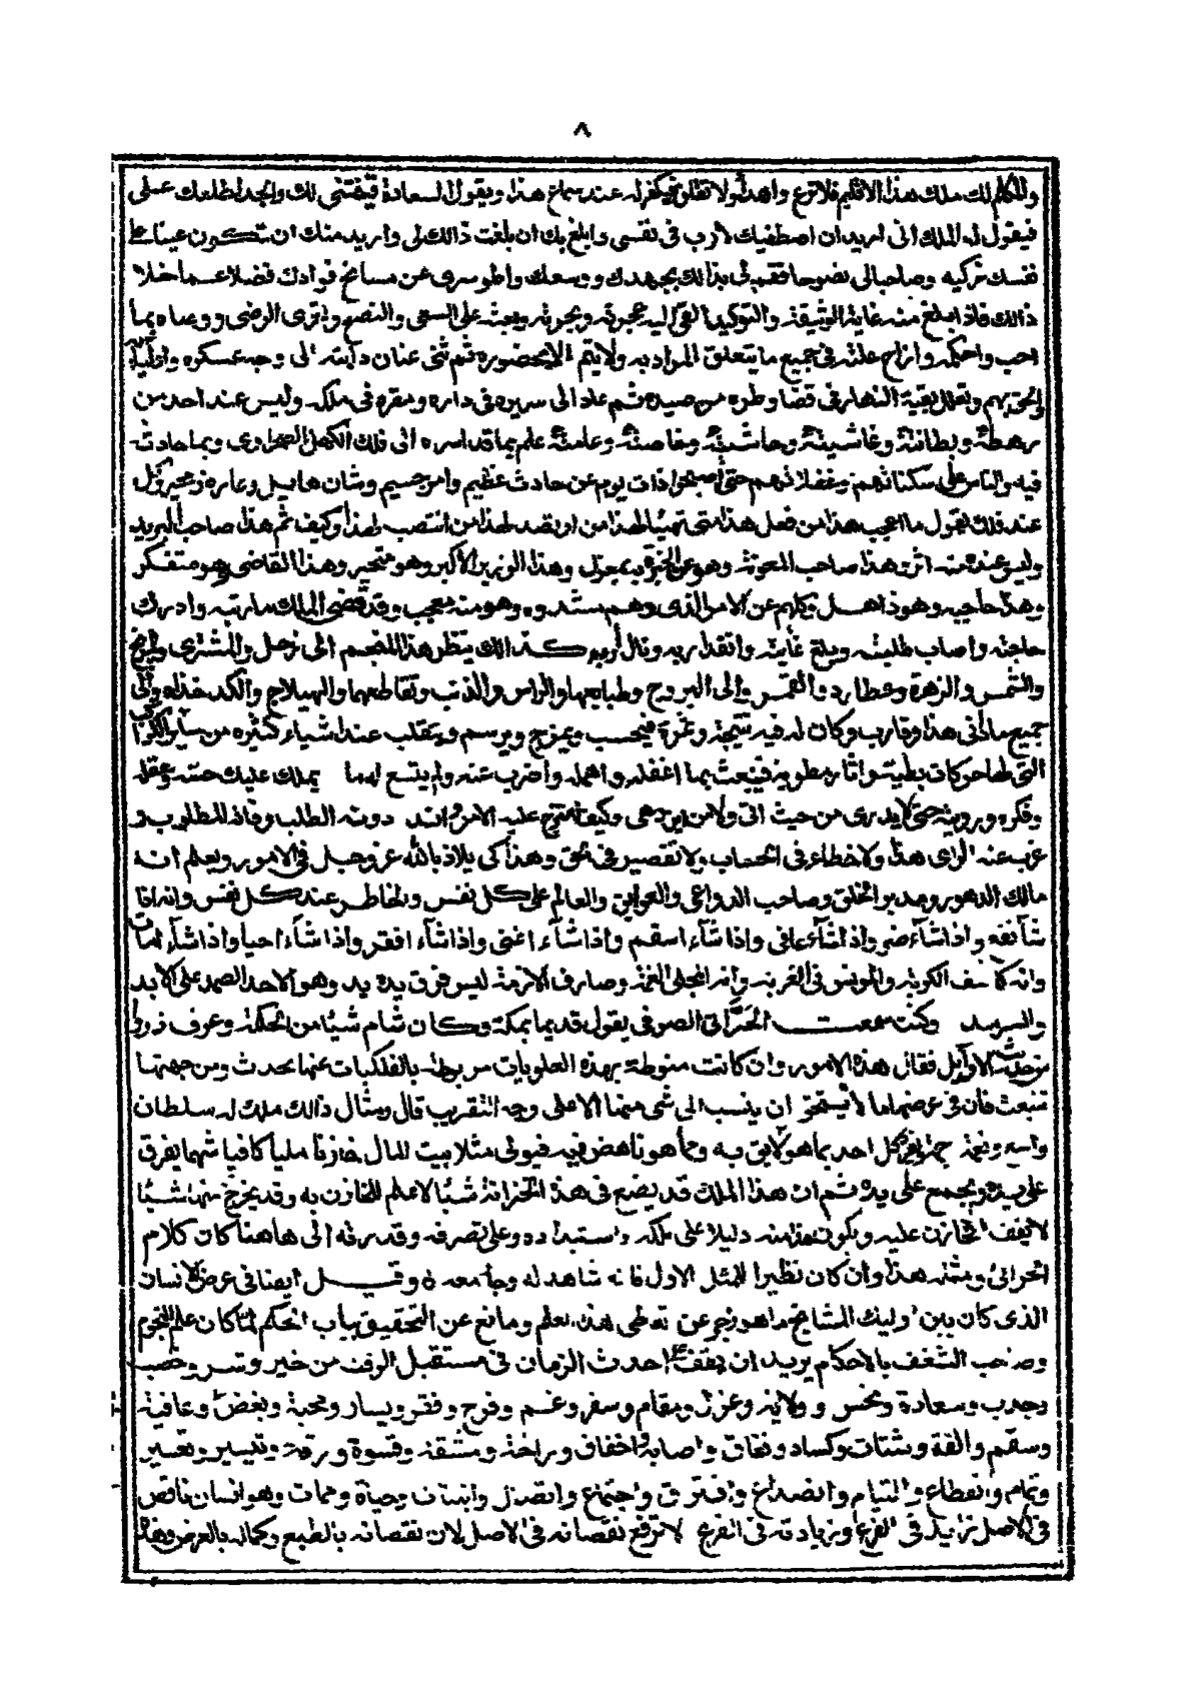 ٨
والمكلم لك ملك هذا الاقليم فلا ترع واهدأ ولا تقلق فيكفر له عند سماع هذا ويقول السعادة قيضتني لك والجد اطلعك على
فيقول له الملك اني اريد ان اصطفيك لارب في نفسي وابلغ بك ان بلغت ذالك لى واريد منك ان تكون عينا على
نفسك زكيه وصاحبا لى نصوحا فقم لى بذالك بجهدك ووسعك واطو سرى عن سانح فوادك فضلا عما خلا
ذالك فاذا بلغ منه غاية الوثيقة والتوكيد القى اليه عجره وبجره وبعثه على السعى والنصح وتحرى الرضى ووصاه بما
احب واحكمه وازاح علته في جميع ما يتعلق المراد به ولا يتم الا بحضوره ثم ثنى عنان دآبته الى وجه عسكره واوليآئه
والحق بهم وتعلل بقية النهار فى قضا وطره من صيده ثم عاد الى سريره في داره ومقره في ملكه وليس عند احد من
رهطه وبطانته وغاشيته وحاشيته وخاصته وعامته علم بما قد اسره الى ذلك الكهل الصحراوى وبما حادثه
فيه والناس على سكناتهم وغفلاتهم حتى اصبحوا ذات يوم عن حادث عظيم وامر جسيم وشان هايل وعارض محير وكل
عند ذلك يقول ما اعجب هذا من فعل هذا متى تهيأ هذا من ارصد لهذا من انتصب لهذا وكيف تم هذا صاحب البريد
وليس عنده منه اثر هذا صاحب المعونة وهو عن الخبرة بمعزل وهذا الوزير الاكبر وهو متحير وهذا القاضى وهو متفكر
وهذا حاجبه وهو ذاهل وكلهم عن الامر الذى دهم مشدوه وهو منه معجب وقد قضى الملك ماربته وادرك
حاجته واصاب طلبته وبلغ غايته وانفد اربه ونال اربه كذالك ينظر هذا المنجم الى زحل والمشترى والمريخ
والشمس والزهرة وعطارد والقمر والى البروج وطبايعها والراس والذنب وتقاطعهما والهيلاج والكدخذاه والى
جميع مادانى هذا وقاربه وكان له فيه نتيجة وثمرة فيحسب ويمزج ويرسم ويتقلب عنه اشياء كثيره من سآير الكواكب
التى لها حركات بطيئة واثار مطوية فينبعث بما اغفله واهمله واضرب عنه ولم يتسع له ما يملك عليه حسه وعقله
وفكره ورويته حتى لا يدرى من حيث اتى ولا من اين دهى وكيف انفرج عليه الامر وانسد دونه الطلب وفاته المطلوب و
غرب عنه الراى هذا ولا خطاء في الحساب ولا تقصير في الحق وهذا كى يلاذ بالله عز وجل في الامور ويعلم انه
مالك الدهور ومدبر الخلق وصاحب الدواعى والعوايق والعالم على كل نفس والحاضر عند كل نفس وانه اذا
شآ نفع واذا شآء ضر واذا شآء عافى واذا شآء اسقم واذا شآء اغنى واذا شآء افقر واذا شآء احيا واذا شآء امات
وانه كاشف الكربة والمونس في الغربة وانه المجلى الغمة وصارف الازمة ليس فوق يده يد وهو الاحد الصمد على الابد
والسرمد وكنت سمعت الحرَّانى الصوفى يقول قديما بمكة وكان شام شيئا من الحكمة وعرف ذروا
من حديث الاوآيل فقال هذه الامور وان كانت منوطة بهذه العلويات مربوطة بالفلكيات عنها يحدث ومن جهتها
تنبعث فان فى عرضها ما لا يستحق ان ينسب الى شى منها الا على وجه التقريب قال ومثال ذالك ملك له سلطان
واسع ونعمة جمة يفرد كل احد بما هو لايق به وبما هو ناهض فيه فيولى مثلا بيت المال خازنا مليا كافيا شهما يفرق
على يده ويجمع على يده ثم ان هذا الملك قد يضع في هذه الخزانة شيئا لا علم للخازن به وقد يخرج منها شيئا
لا يقف الخازن عليه ويكون هذا منه دليلا على ملكه واستبداده وعلى تصرفه وقدرته الى هاهنا كان كلام
الحرانى وبثه هذا وان كان نظيرا للمثل الاول فانه شاهد له وجامعه وقيل ايضا فى عرض الانسان
الذى كان بين اوليك المشايخ ما هو زجر عن تعاطى هذه تعلم ومانع عن التحقيق بباب الحكم لما كان علم النجوم
وصاحب الشغف بالاحكام يريد ان يقف على احدث الزمان فى مستقبل الوقت من خير وشر وخصب
وجدب وسعادة ونحس و ولاية وعزل ومقام وسفر وغم وفرج وفقر ويسار ومحبة وبغض وعافية
وسقم والفة وشتات وكساد ونفاق واصابة واخفاق وراحة ومشقة وقسوة ورقة وتيسير وتعسير
وتمام وانقطاع والتيام وانصداع وافتراق واجتماع واتصال وانبتات وحياة وممات وهو انسان ناقص
فى الاصل زايد فى الفرع وزيادته فى الفرع لا ترفع نقصانه فى الاصل لان نقصانه بالطبع وكماله بالعرض وهذا